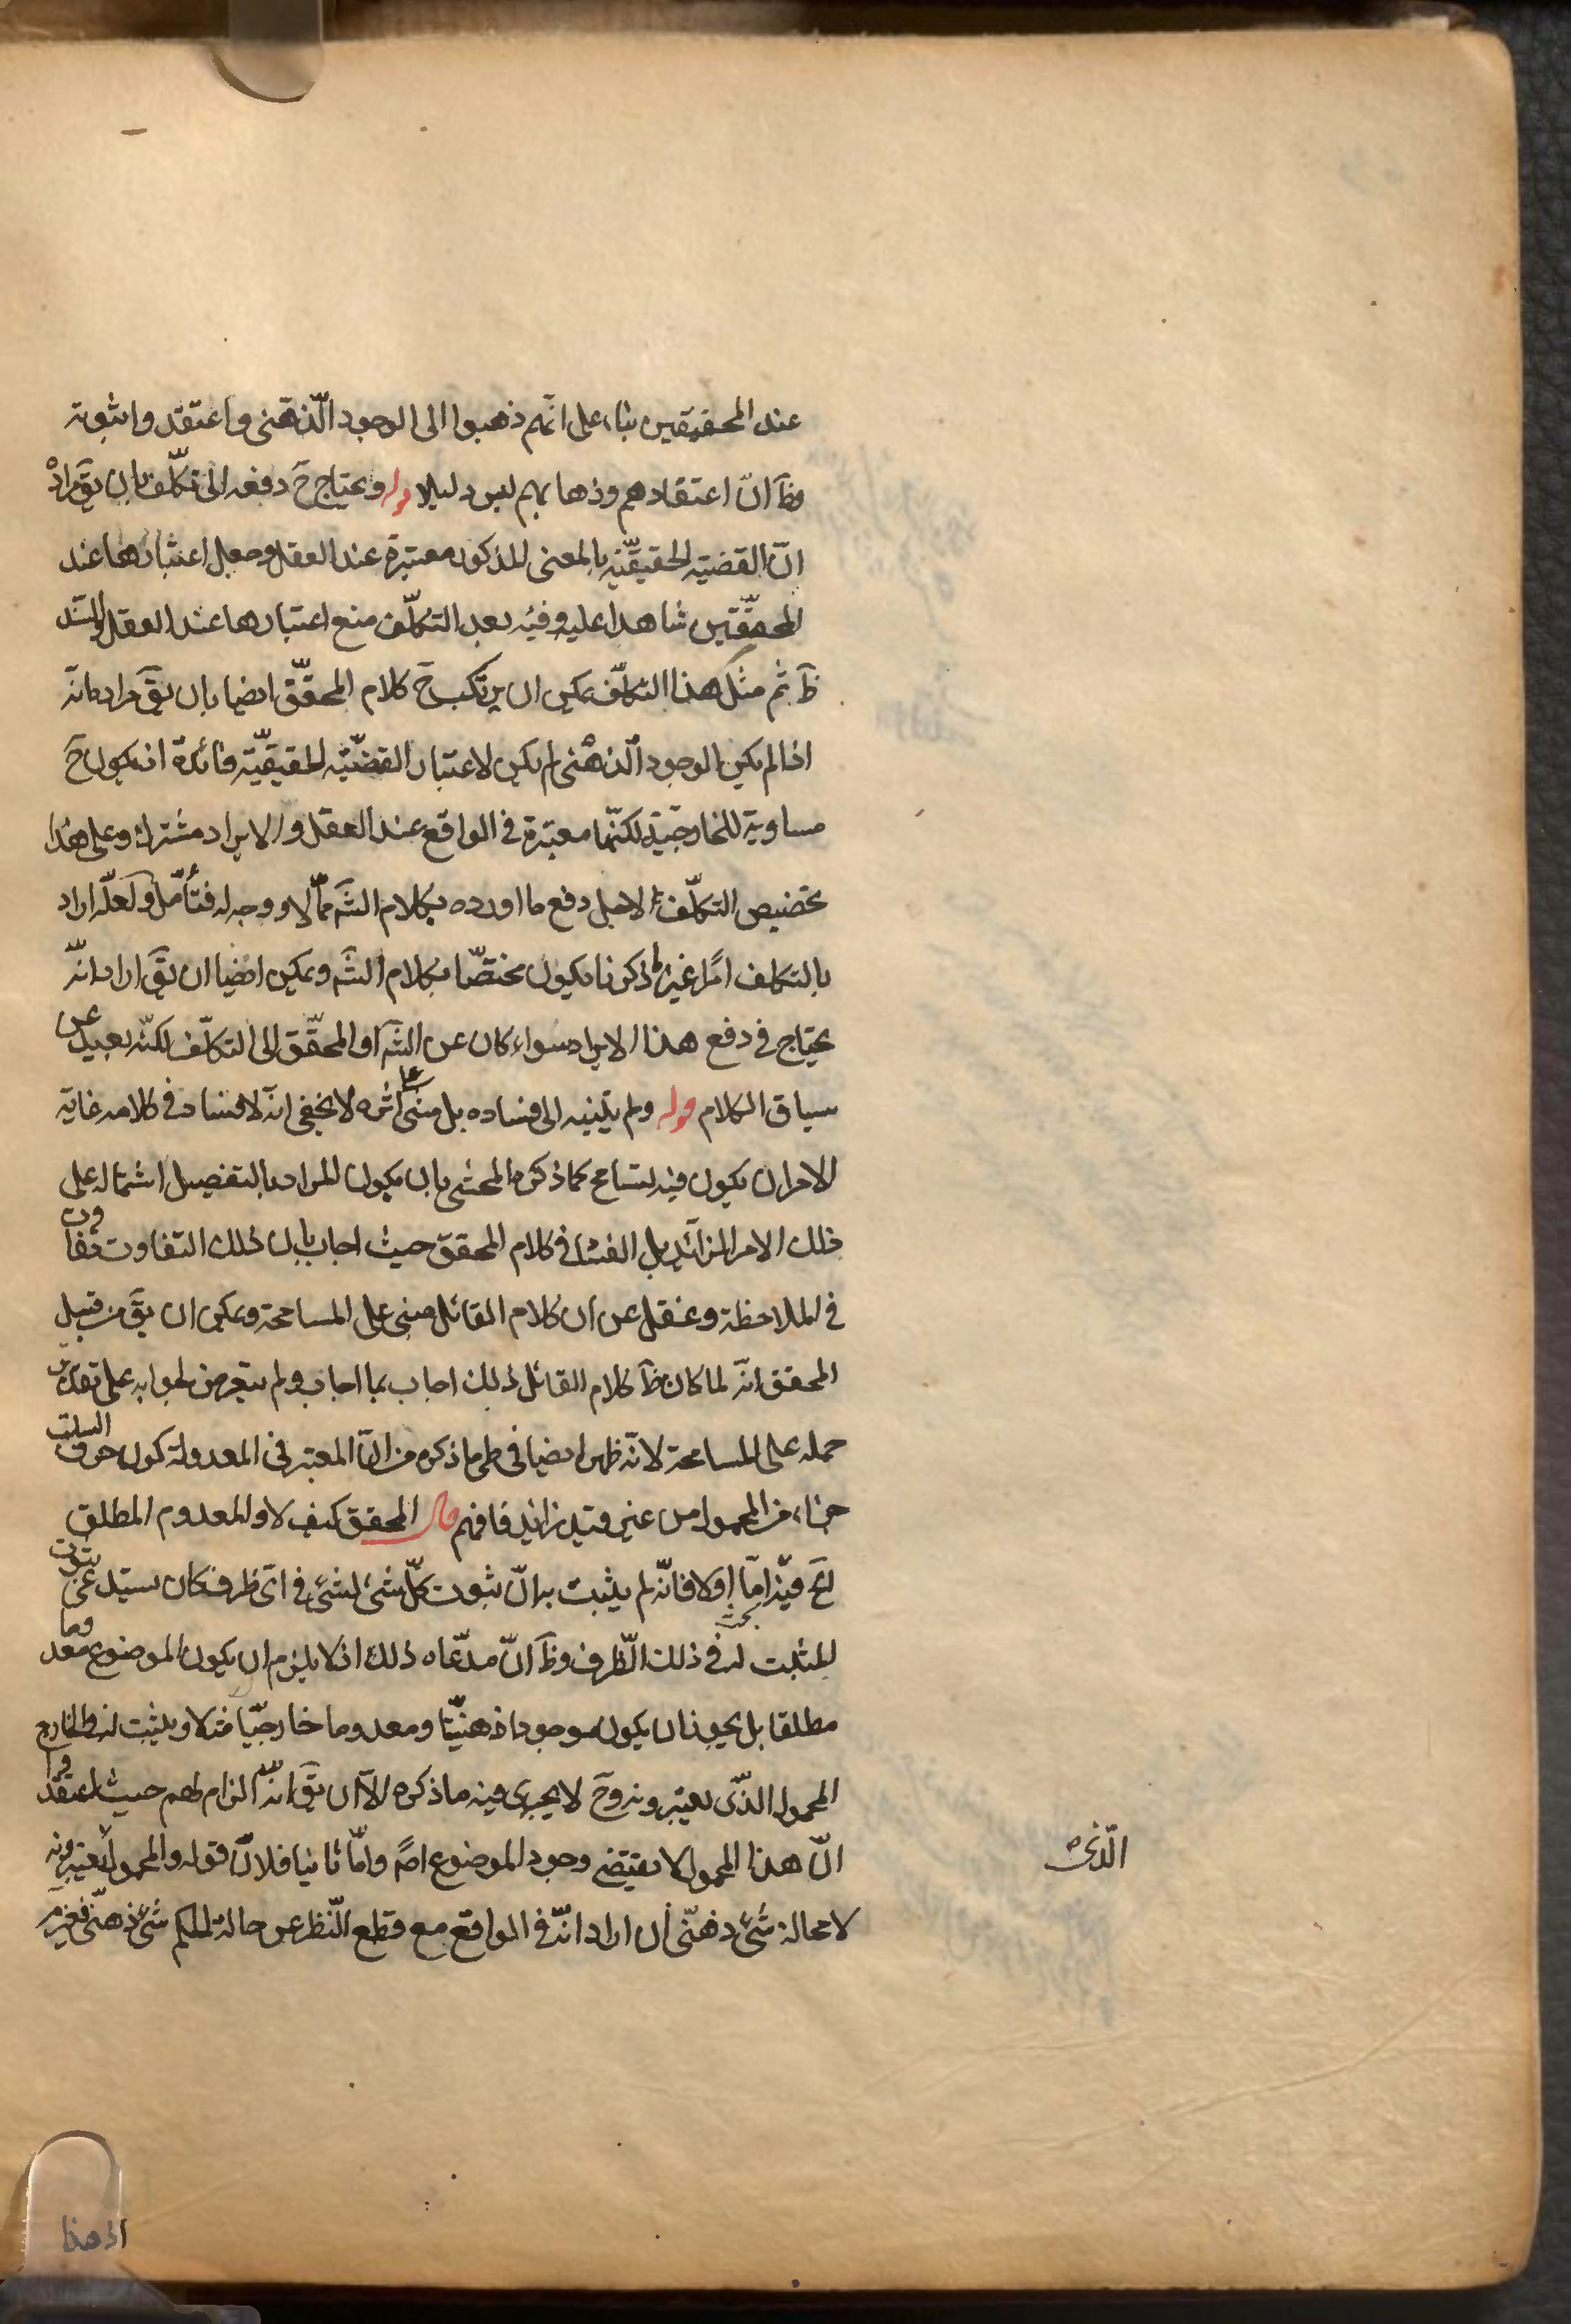 عند المحققين بناء على انّهم ذهبوا الى الوجود الذّهنى واعتقدوا ثبوته
وظَ انّ اعتقادهم وذهابهم ليس دليلا قوله ويحتاج حَ دفعه الى تكلّف بان يقَ مراده
انّ القضيّة الحقيقيّة بالمعنى المذكور معتبرة عند العقل وجعل اعتبارها عند
المحقّقين شاهدا عليه وفيه بعد التكلّف منع اعتبارها عند العقل والسند
ظَ ثم مثل هذا التكلّف يمكن ان يرتكب حَ كلام المحقّق ايضا بان يقَ مراده انّه
اذا لم يكن الوجود الذّهنى لم يكن لاعتبار القضيّة الحقيقيّة فائدة اذ يكون حَ
مساوية للخارجيّة لكنّها معتبرة فى الواقع عند العقل والايراد مشترك وعلى هذا
تخصيص التكلّف لاجل دفع ما اورده بكلام الشَه ممّا لا وجه له فتأمّل ولعلّه اراد
بالتكلف امرًا غير ما ذكرنا يكون مختصّا بكلام الشَه ويمكن ايضا ان يقَ اراد انّه
يحتاج فى دفع هذا الايراد سواء كان عن الشَه او المحقّق الى التكلّف لكنّه بعيد عن
سياق الكلام قوله ولم يتنبه الى فساده بل مشى على اثره لا يخفى انّه لا فساد فى كلامه غاية
الامر ان يكون فيه تسامح كما ذكره المحشى بان يكون المراد بالتفصيل اشتماله على
ذلك الامر الزائد بل الفساد فى كلام المحقق حيث اجاب بان ذلك التفاوت تفاوت
فى الملاحظة وغفل عن ان كلام القائل مبنى على المسامحة ويمكن ان يقَ من قبل
المحقق انّه لما كان ظَ كلام القائل ذلك اجاب بما اجاب ولم يتعرض لجوابه على تقدير
حمله على المسامحة لانّه ظهر ايضا فى طى ما ذكره من انّ المعتبر فى المعدولة كون حرف السلب
جزءا من المحمول من غير قيد زائد فافهم قال المحقق كيف لا والمعدوم المطلق
الخَ فيه امّا اولا فانّه لم يثبت به انّ ثبوت كلّ شئ لشئ فى اىّ ظرف كان يستدعى ثبوت
المثبت له فى ذلك الظّرف وظَ انّ مدّعاه ذلك اذ لا يلزم ان يكون الموضوع معدوما
مطلقا بل يجوز ان يكون موجودا ذهنيّا ومعدوما خارجيّا مثلا ويثبت له فى الخارج
المحمول الذّى يعتبرونه وحَ لا يجرى فيه ما ذكره الّا ان يقَ انّه الزام لهم حيث اعتقدوا
انّ هذا المحمول لا يقتضى وجود الموضوع اصلا وامّا ثانيا فلانّ قوله والمحمول الّذى يعتبرونه
لا محالة شئ ذهنّى ان اراد انّه فى الواقع مع قطع النّظر عن حالة الحكم شئ ذهنّى فغير
الّذى
اذ هذا